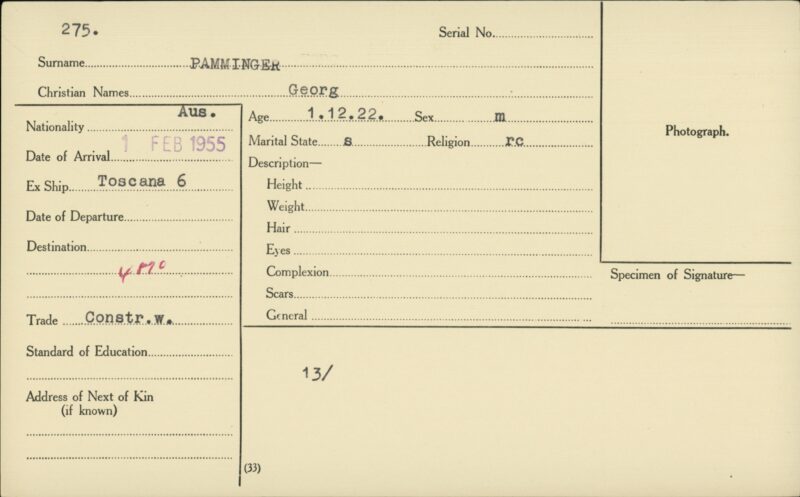 275.
Serial No.
Surname PAMMINGER
Christian Names Georg
Nationality Aus.
Date of Arrival 1 FEB 1955
Ex Ship Toscana 6
Date of Departure
Destination
4870
Trade Constr.w.
Standard of Education
Address of Next of Kin
(if known)
Age 1.12.22. Sex m
Marital State s Religion rc
Description—
Height
Weight
Hair
Eyes
Complexion
Scars
General
13/
(33)
Photograph.
Specimen of Signature—